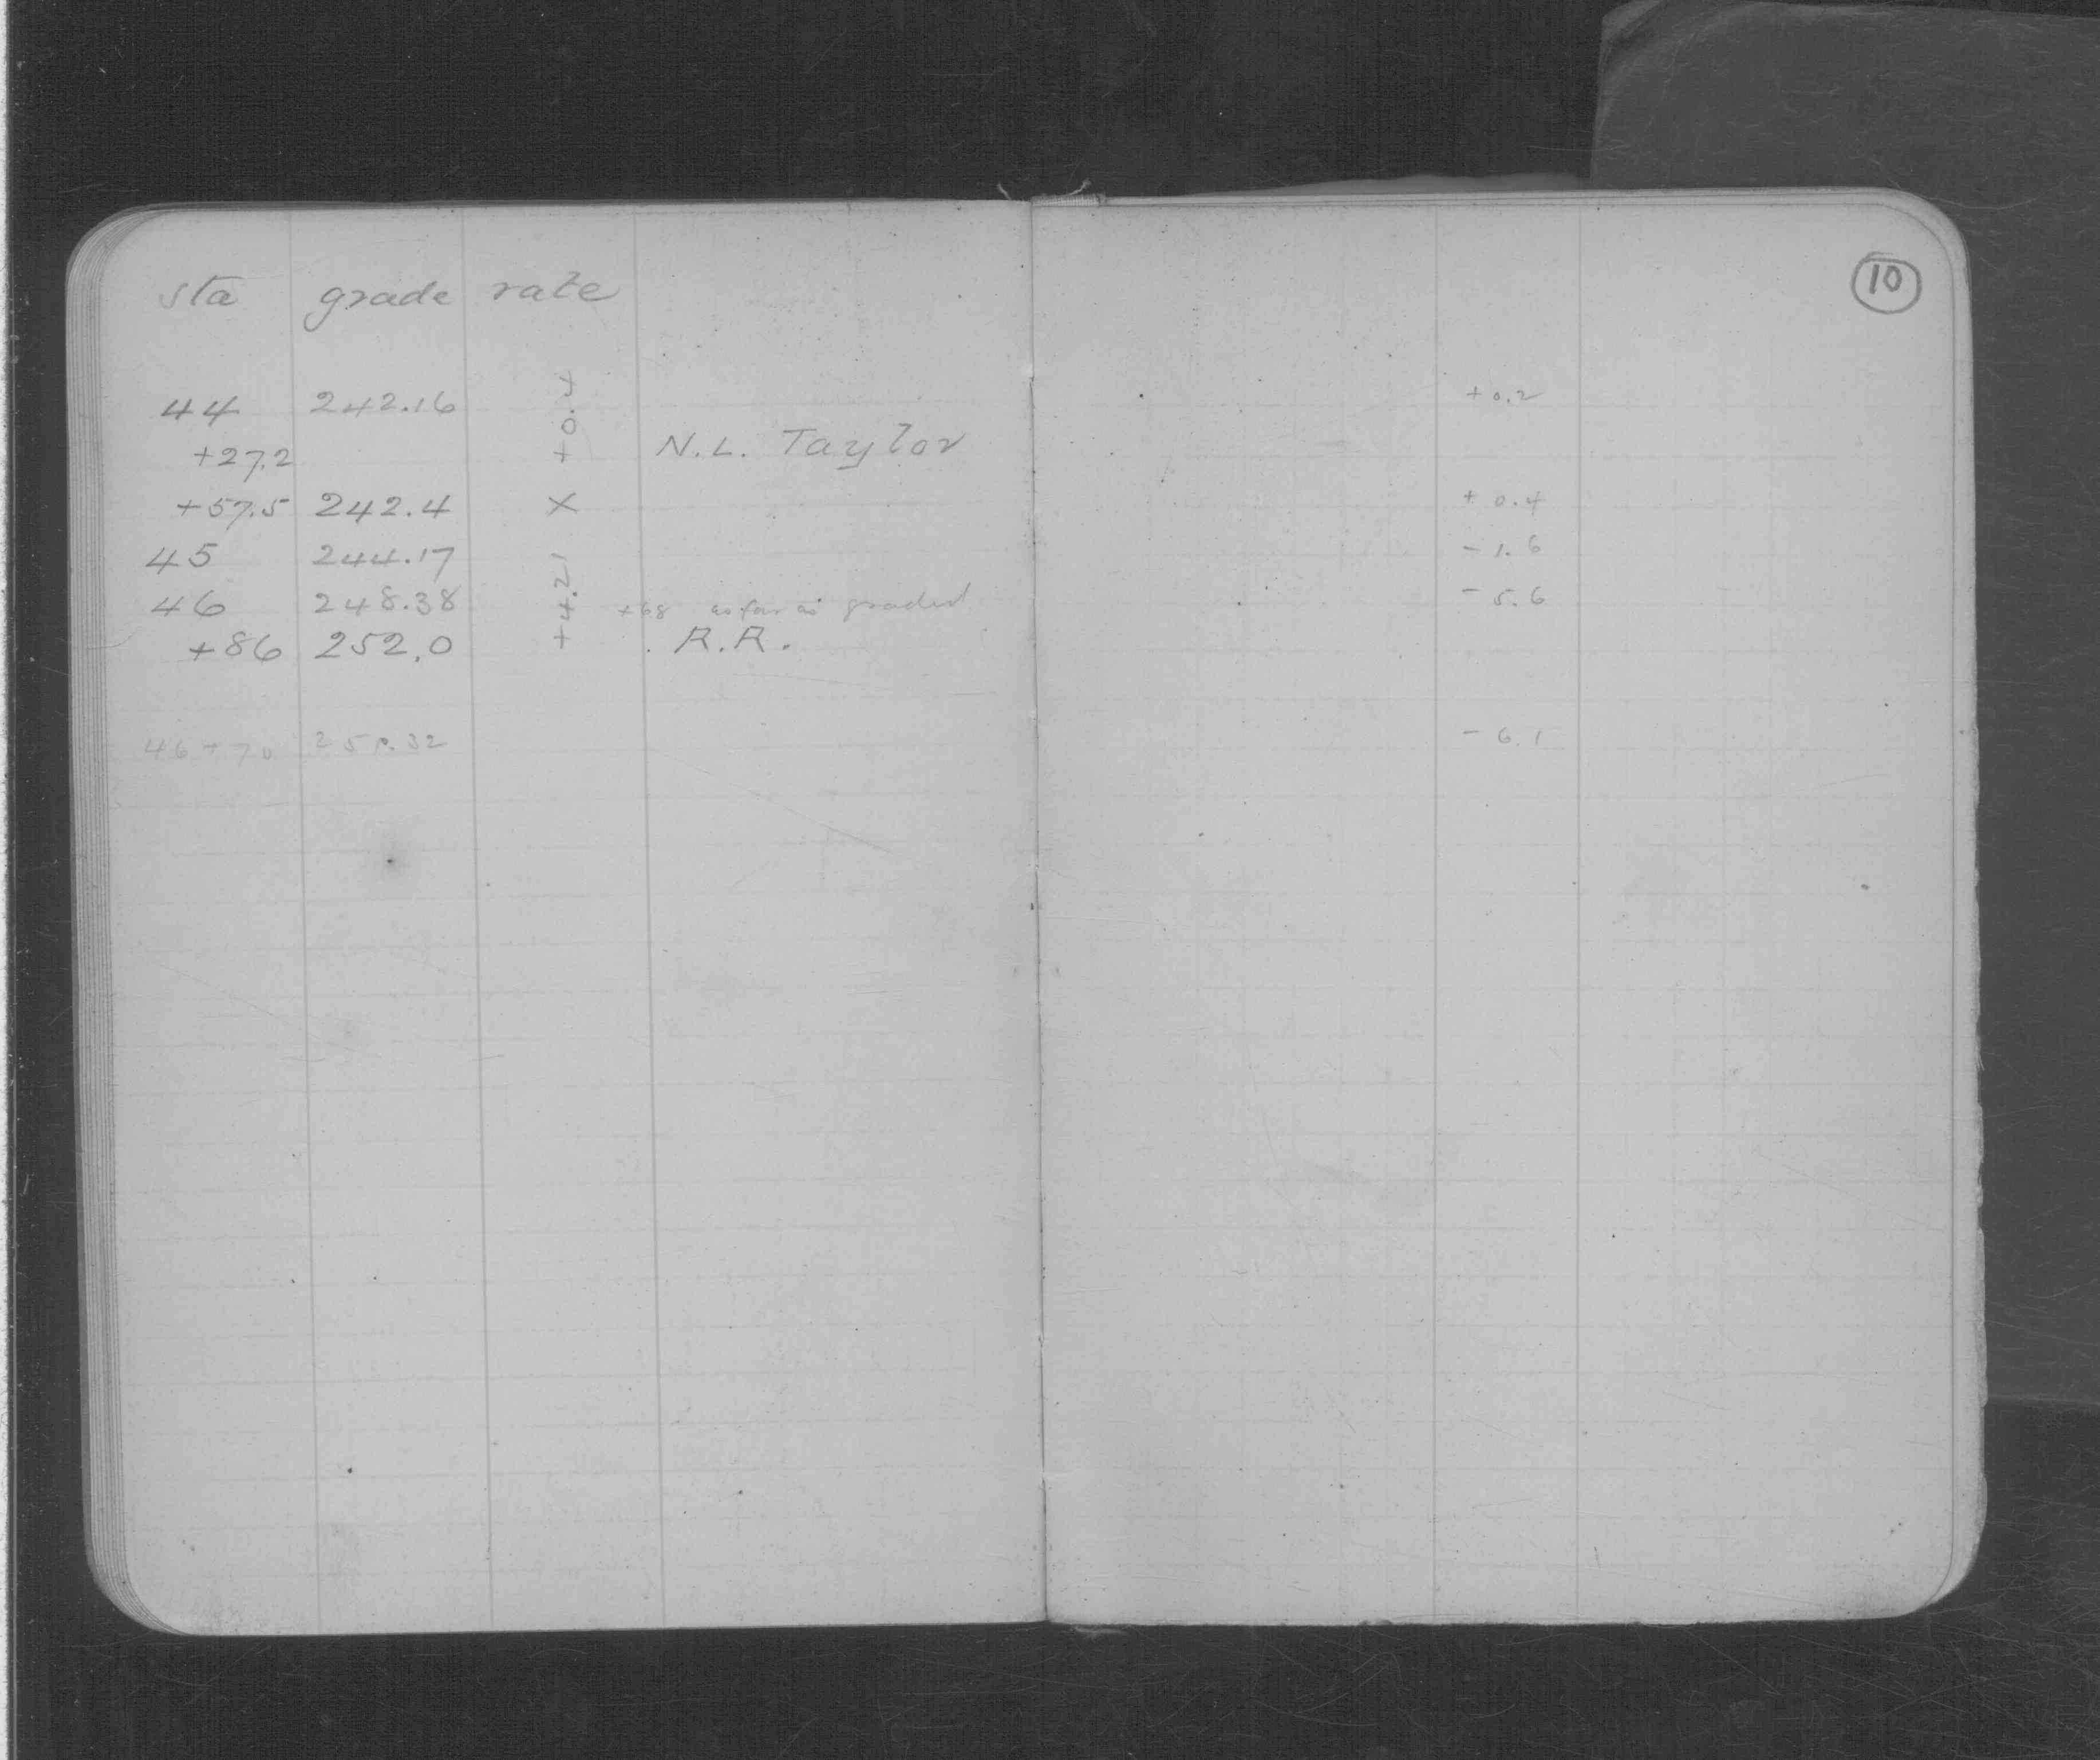 10
sta grade rate
44 242.16 +0.4 +0.2
+27.2 N.L. Taylor
+57.5 242.4 X +0.4
45 244.17 +4.21 -1.6
46 248.38 +68 as far as graded -5.6
+86 252.0 R.R.
46+70 251.32 -6.1